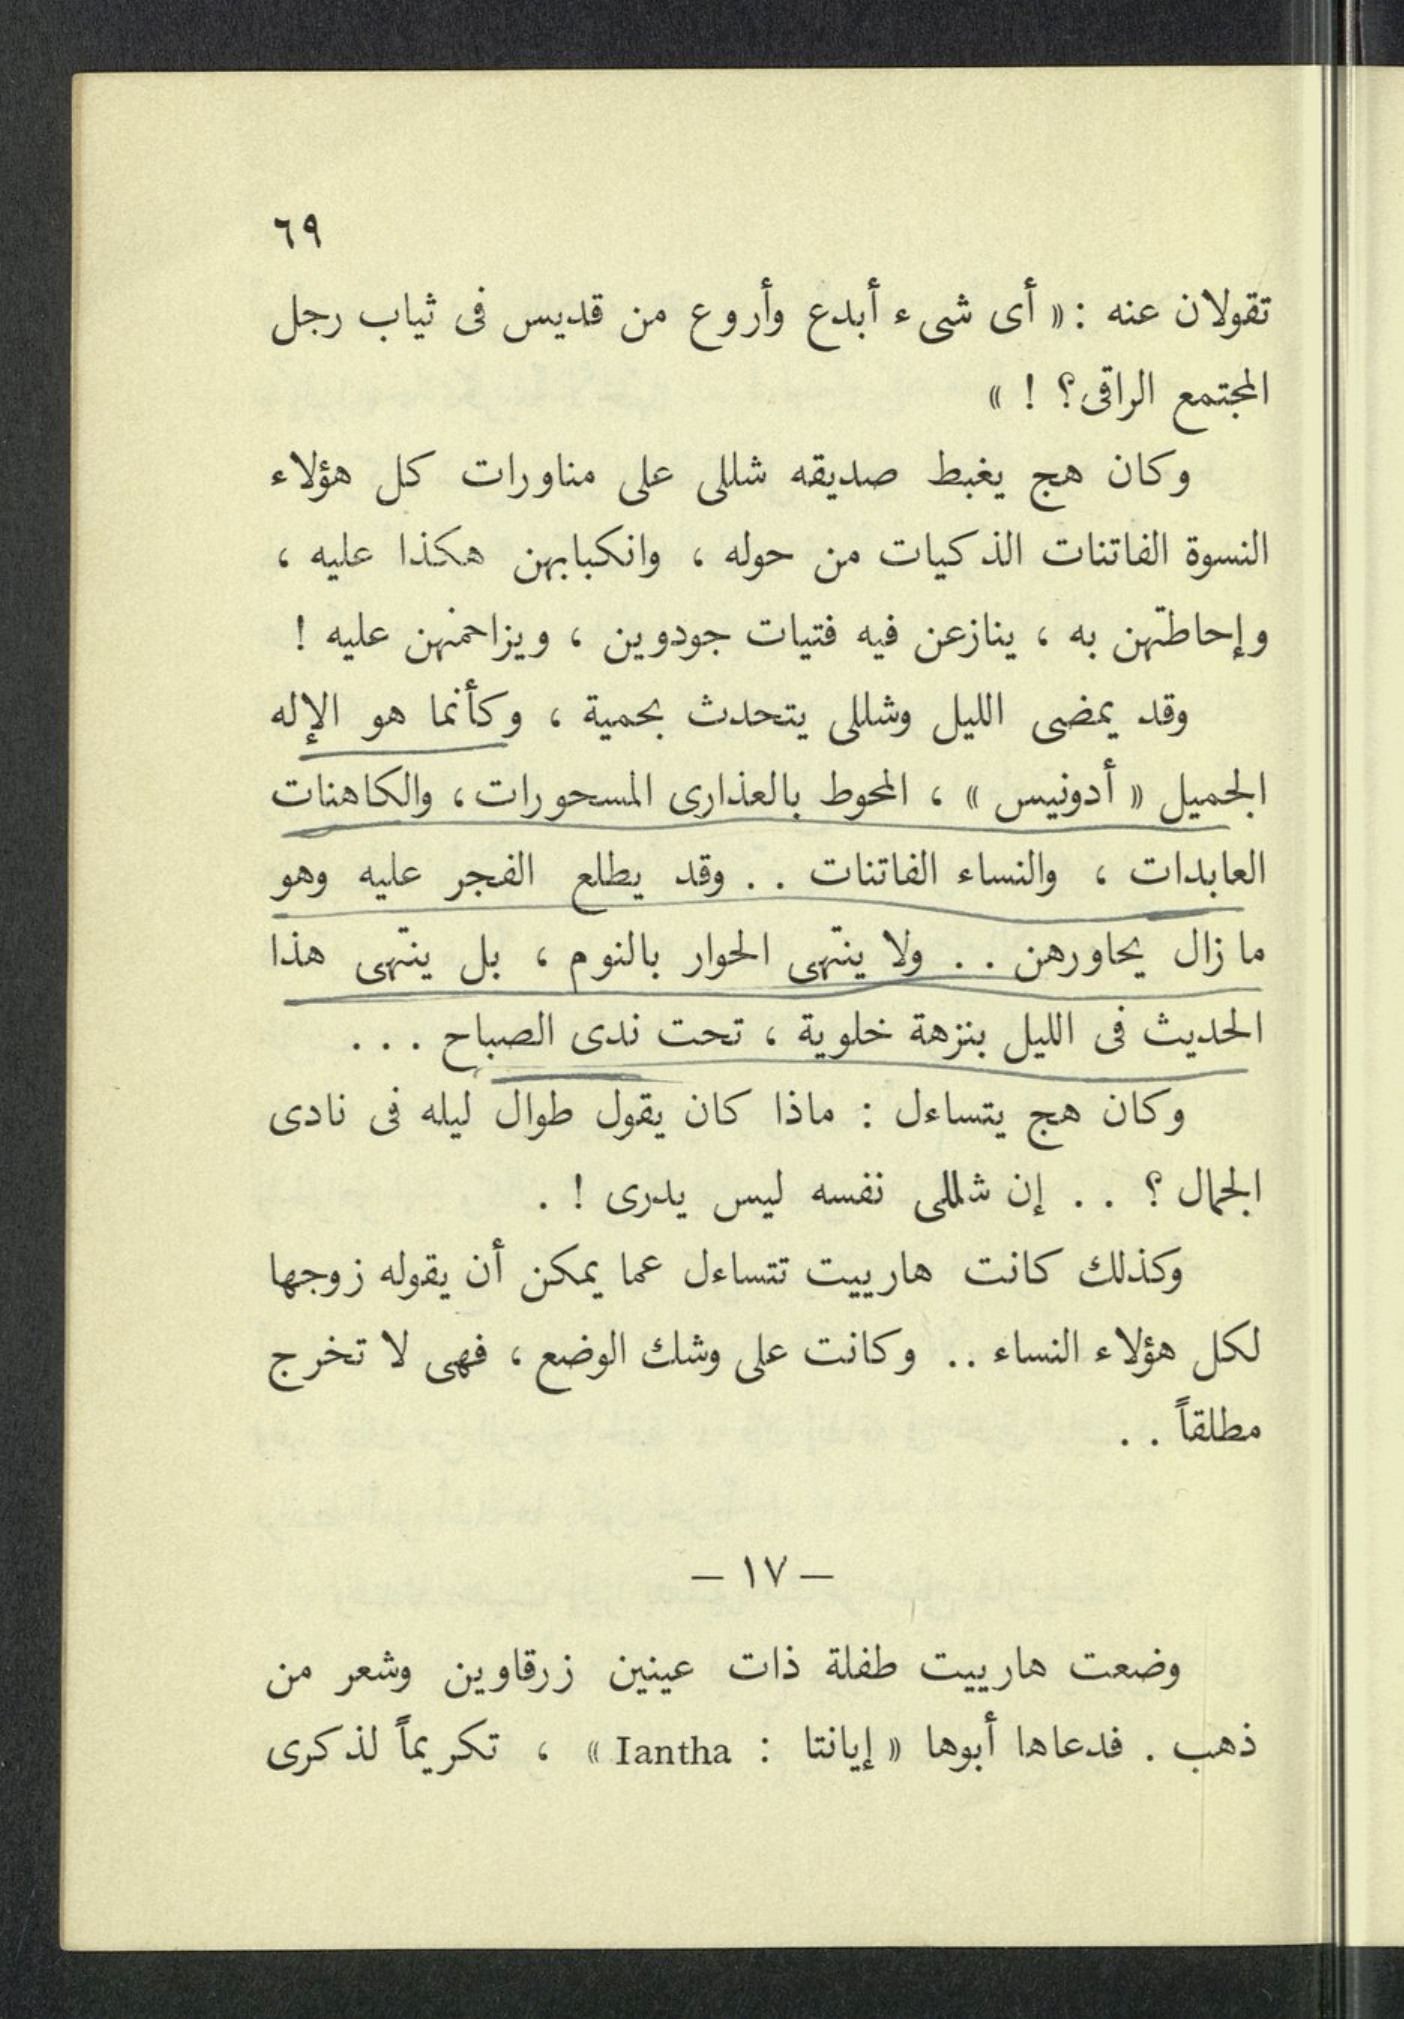 ٦٩
تقولان عنه : « أى شىء أبدع وأروع من قديس فى ثياب رجل
المجتمع الراقى؟ ! »
وكان هج يغبط صديقه شللى على مناورات كل هؤلاء
النسوة الفاتنات الذكيات من حوله ، وانكبابهن هكذا عليه ،
وإحاطتهن به ، ينازعن فيه فتيات جودوين ، ويزاحمنهن عليه !
وقد يمضى الليل وشللى يتحدث بحمية ، وكأنما هو الإله
الجميل « أدونيس » ، المحوط بالعذارى المسحورات ، والكاهنات
العابدات ، والنساء الفاتنات . . وقد يطلع الفجر عليه وهو
ما زال يحاورهن . . ولا ينتهى الحوار بالنوم ، بل ينتهى هذا
الحديث فى الليل بنزهة خلوية ، تحت ندى الصباح . . .
وكان هج يتساءل : ماذا كان يقول طوال ليله فى نادى
الجمال ؟ . . إن شللى نفسه ليس يدرى ! .
وكذلك كانت هارييت تتساءل عما يمكن أن يقوله زوجها
لكل هؤلاء النساء .. وكانت على وشك الوضع ، فهى لا تخرج
مطلقاً . .
— ١٧ —
وضعت هارييت طفلة ذات عينين زرقاوين وشعر من
ذهب . فدعاها أبوها « إيانتا : Iantha » ، تكريماً لذكرى